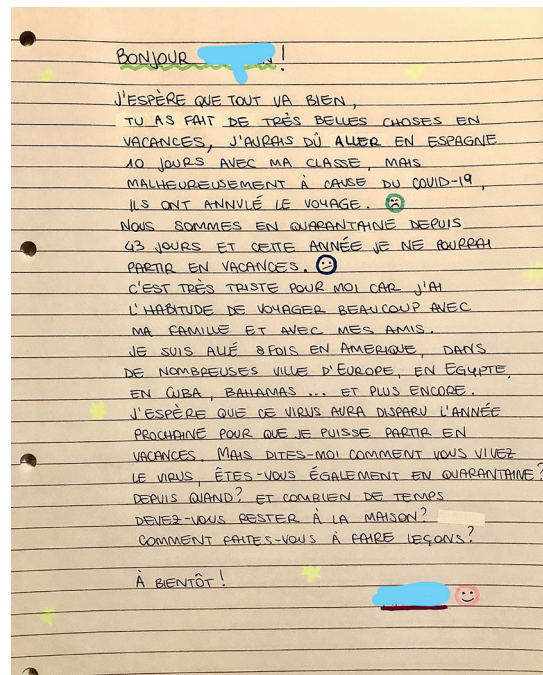 BONJOUR !
J'ESPÈRE QUE TOUT VA BIEN,
TU AS FAIT DE TRÈS BELLES CHOSES EN
VACANCES, J'AURAIS DÛ ALLER EN ESPAGNE
10 JOURS AVEC MA CLASSE, MAIS
MALHEUREUSEMENT À CAUSE DU COVID-19,
ILS ONT ANNVLÉ LE VOYAGE.
NOUS SOMMES EN QUARANTAINE DEPUIS
43 JOURS ET CETTE ANNÉE JE NE POURRAI
PARTIR EN VACANCES.
C'EST TRÈS TRISTE POUR MOI CAR J'AI
L'HABITUDE DE VOYAGER BEAUCOUP AVEC
MA FAMILLE ET AVEC MES AMIS.
JE SUIS ALLÉ 8 FOIS EN AMERIQUE, DANS
DE NOMBREUSES VILLE D'EUROPE, EN EGYPTE,
EN CUBA, BAHAMAS ... ET PLUS ENCORE.
J'ESPÈRE QUE CE VIRUS AURA DISPARU L'ANNÉE
PROCHAINE POUR QUE JE PUISSE PARTIR EN
VACANCES. MAIS DITES-MOI COMMENT VOUS VIVEZ
LE VIRUS, ÊTES-VOUS ÉGALEMENT EN QUARANTAINE?
DEPUIS QUAND? ET COMBIEN DE TEMPS
DEVEZ-VOUS RESTER À LA MAISON?
COMMENT FAITES-VOUS À FAIRE LEÇONS?
À BIENTÔT!